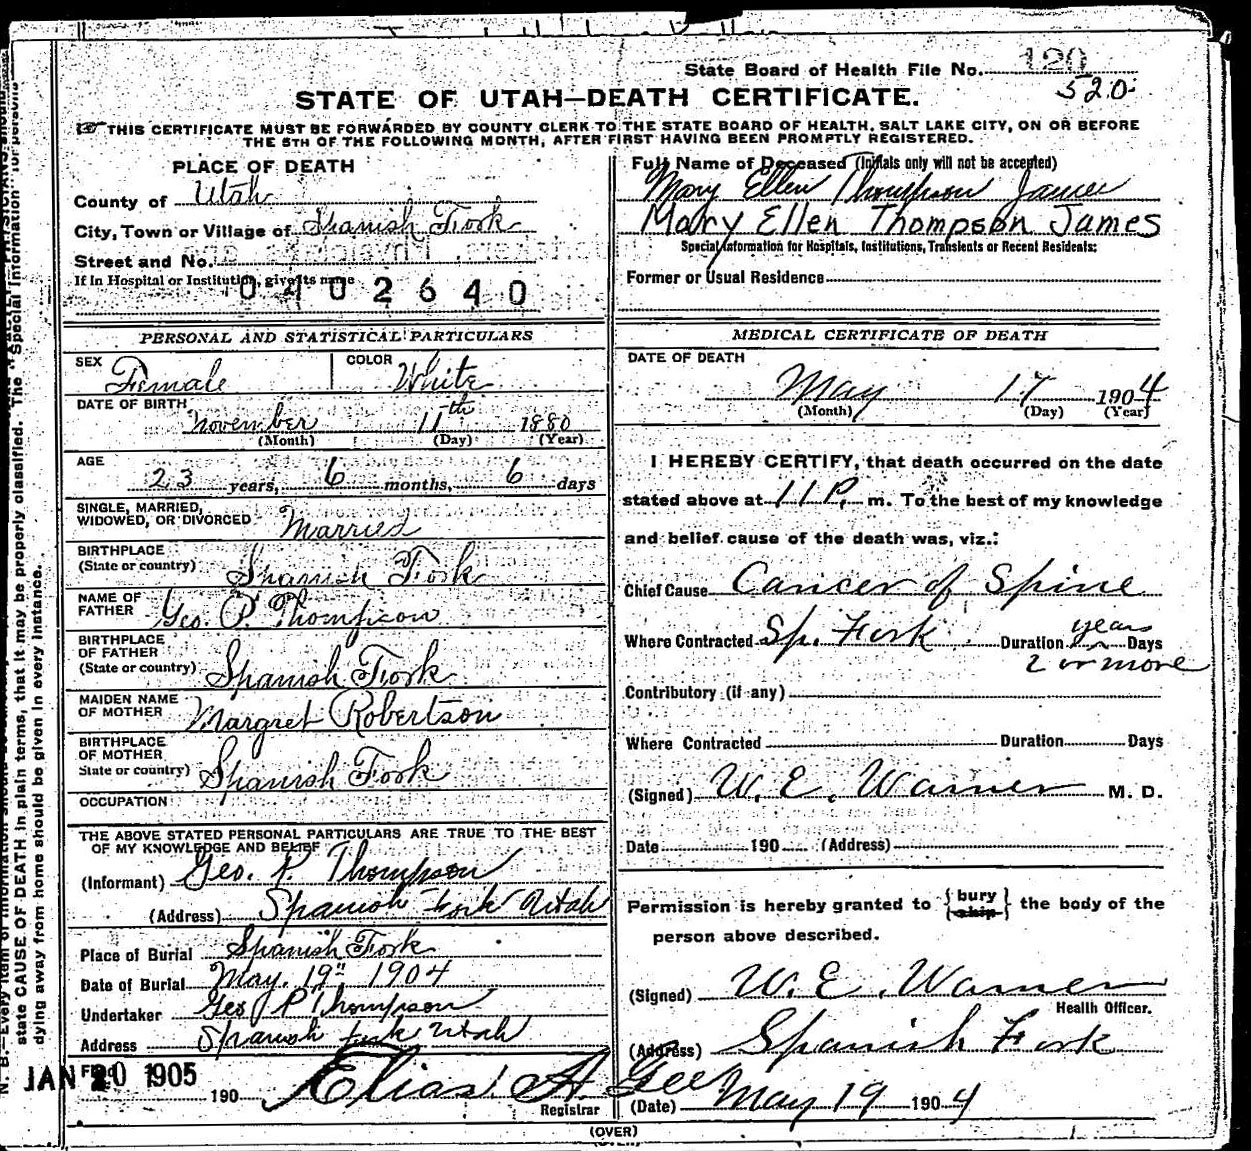 State Board of Health File No. 120
520
STATE OF UTAH—DEATH CERTIFICATE.
THIS CERTIFICATE MUST BE FORWARDED BY COUNTY CLERK TO THE STATE BOARD OF HEALTH, SALT LAKE CITY, ON OR BEFORE
THE 5TH OF THE FOLLOWING MONTH, AFTER FIRST HAVING BEEN PROMPTLY REGISTERED.
PLACE OF DEATH
County of Utah
City, Town or Village of Spanish Fork
Street and No.
If in Hospital or Institution, give its name
0402640
Full Name of Deceased (Initials only will not be accepted)
Mary Ellen Thompson James
Mary Ellen Thompson James
Special Information for Hospitals, Institutions, Transients or Recent Residents:
Former or Usual Residence
PERSONAL AND STATISTICAL PARTICULARS
SEX Female COLOR White
DATE OF BIRTH November 11th 1880
(Month) (Day) (Year)
AGE
23 years, 6 months, 6 days
SINGLE, MARRIED,
WIDOWED, OR DIVORCED Married
BIRTHPLACE
(State or country) Spanish Fork
NAME OF
FATHER Geo. P. Thompson
BIRTHPLACE
OF FATHER
(State or country) Spanish Fork
MAIDEN NAME
OF MOTHER Margret Robertson
BIRTHPLACE
OF MOTHER
State or country) Spanish Fork
OCCUPATION
THE ABOVE STATED PERSONAL PARTICULARS ARE TRUE TO THE BEST
OF MY KNOWLEDGE AND BELIEF
(Informant) Geo. P. Thompson
(Address) Spanish Fork Utah
Place of Burial Spanish Fork
Date of Burial May. 19" 1904
Undertaker Geo P Thompson
Address Spanish Fork Utah
Filed
JAN 20 1905
190 Elias A. Gee
Registrar
MEDICAL CERTIFICATE OF DEATH
DATE OF DEATH
May 17 1904
(Month) (Day) (Year)
I HEREBY CERTIFY, that death occurred on the date
stated above at 11 P. m. To the best of my knowledge
and belief cause of the death was, viz.:
Chief Cause Cancer of Spine
Where Contracted Sp. Fork Duration years Days
2 or more
Contributory (if any)
Where Contracted Duration Days
(Signed) W. E. Warner M. D.
Date 190 (Address)
Permission is hereby granted to {bury
ship} the body of the
person above described.
(Signed) W. E. Warner
Health Officer.
(Address) Spanish Fork
(Date) May 19 1904
(OVER)
state CAUSE OF DEATH in plain terms, that it may be properly classified. The "Special Information" for persons
dying away from home should be given in every instance.